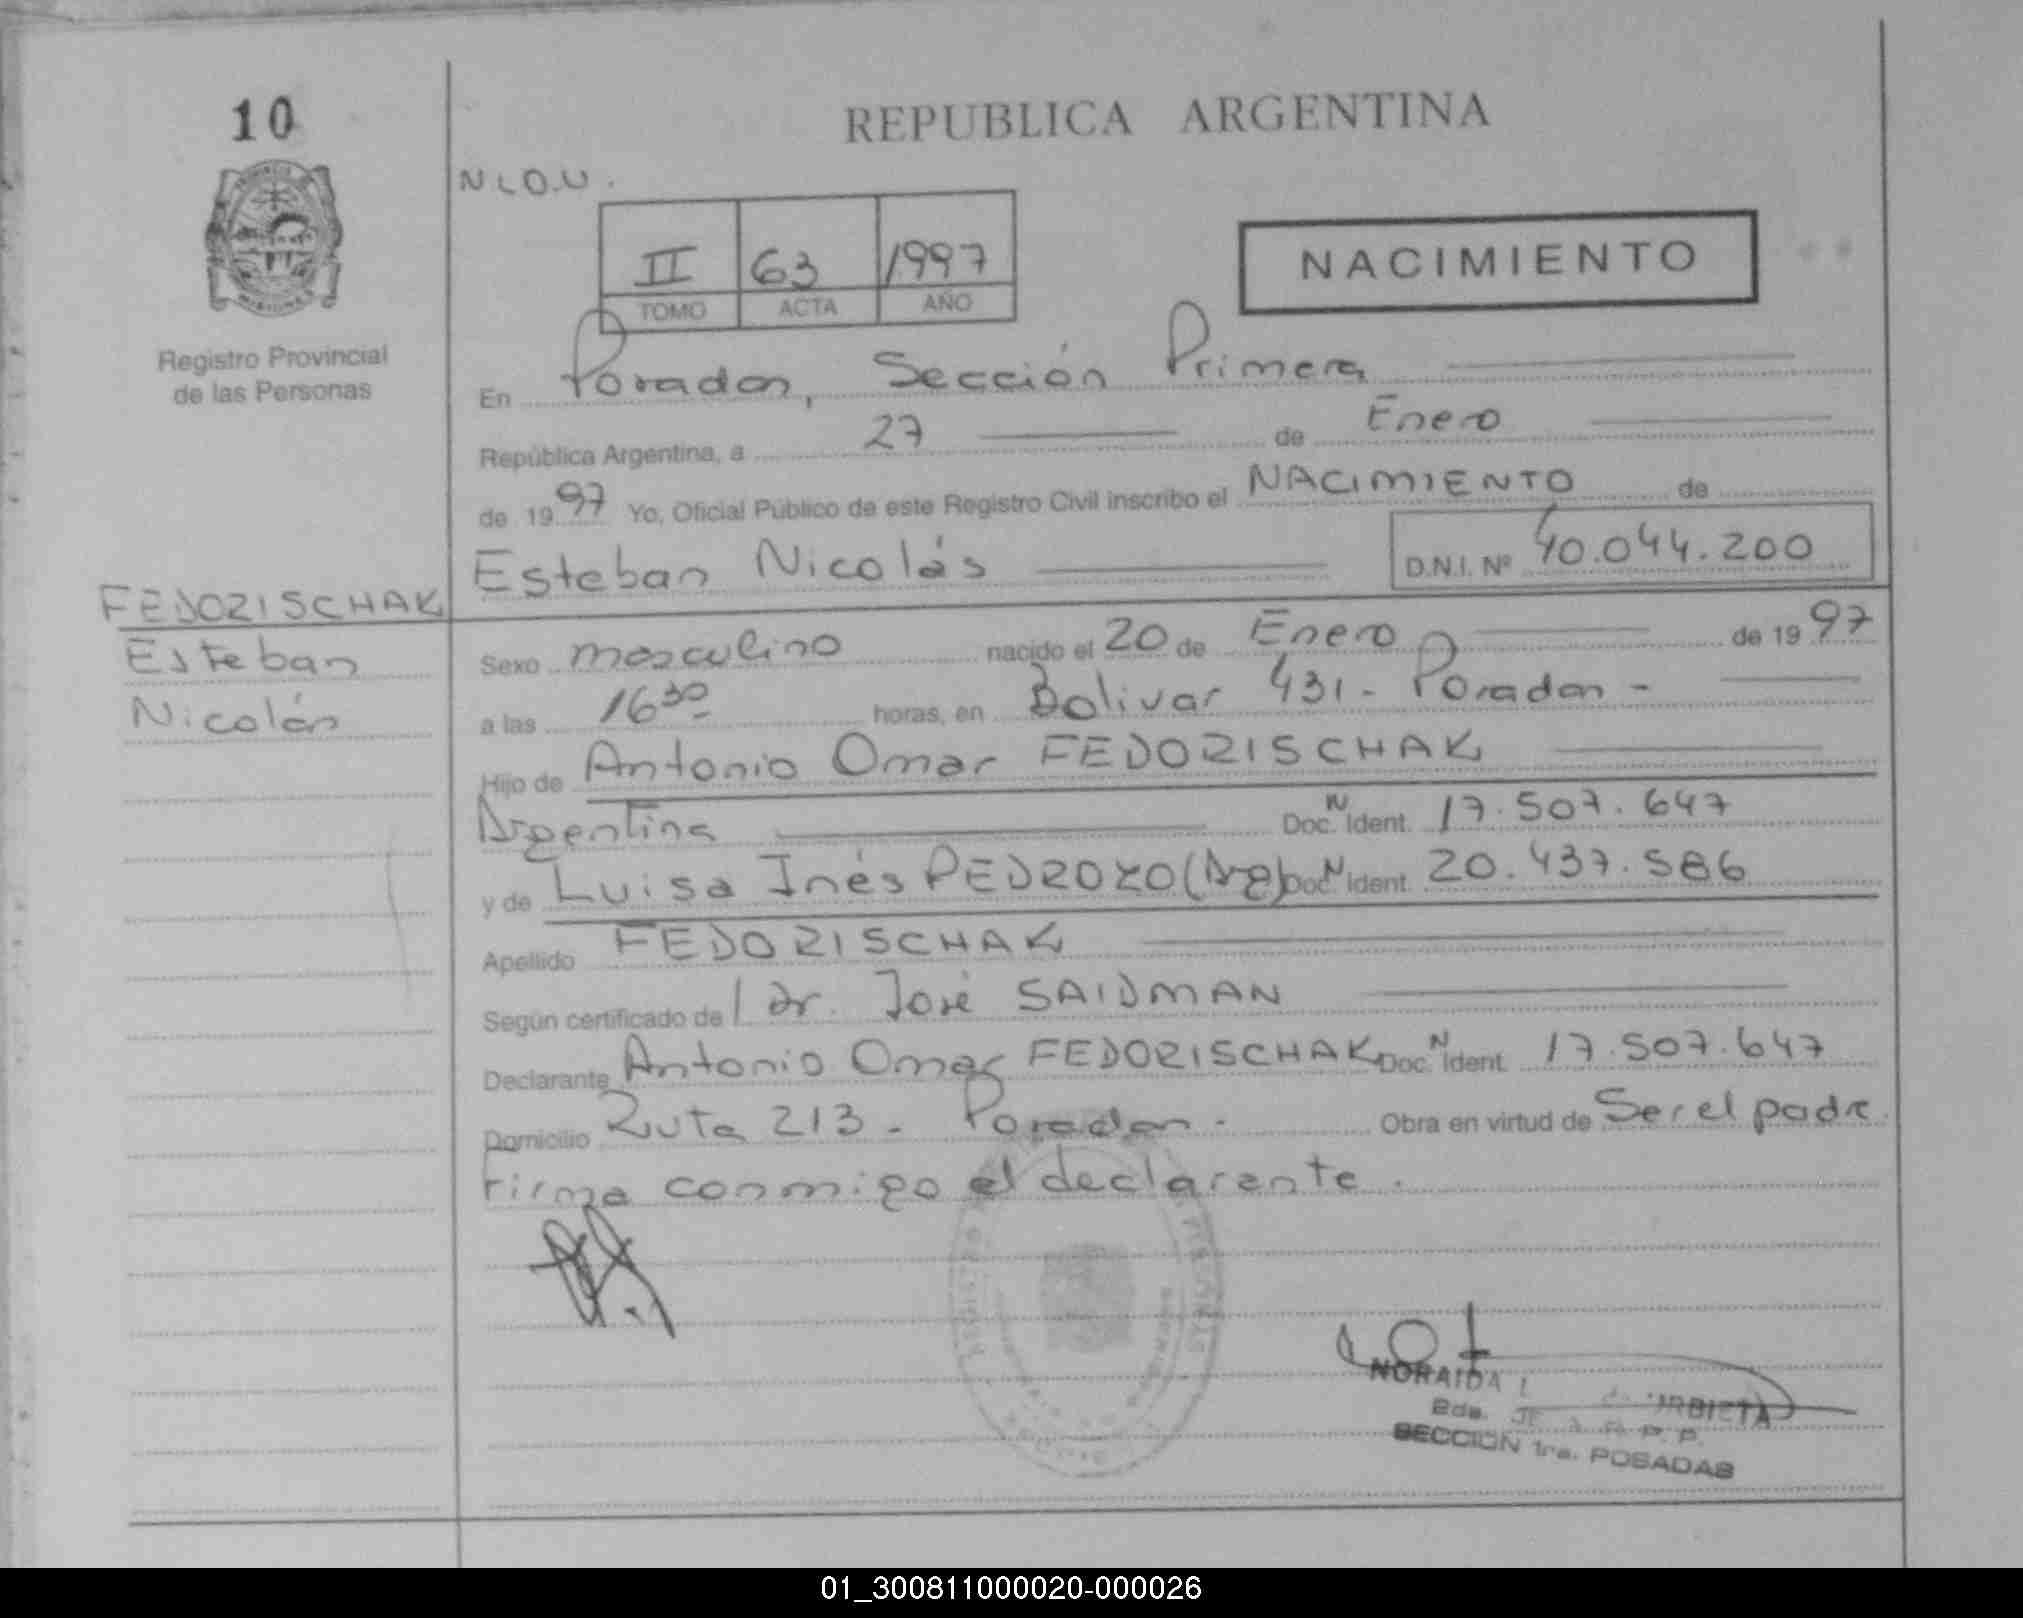 10
REPUBLICA ARGENTINA
II 63 1997
TOMO ACTA AÑO
NACIMIENTO
Registro Provincial
de las Personas
En Posadas, Sección Primera
República Argentina, a 27 de Enero
de 1997 Yo, Oficial Público de este Registro Civil inscribo el NACIMIENTO de
Esteban Nicolás D.N.I. Nº 40.044.200
FEDORISCHAK
Esteban
Nicolás
Sexo masculino nacido el 20 de Enero de 1997
a las 16 30 horas, en Bolivar 431 - Posadas -
Hijo de Antonio Omar FEDORISCHAK
Argentina Doc. N Ident. 17.507.647
y de Luisa Inés PEDROZO (Arg) Doc. N Ident. 20.437.586
Apellido FEDORISCHAK
Según certificado de / Dr. José SAIDMAN
Declarante Antonio Omar FEDORISCHAK Doc. N Ident. 17.507.647
Domicilio Ruta 213 - Posadas - Obra en virtud de Ser el padre.
Firma conmigo el declarante.
NORAIDA URBIETA
SECCION 1ra. POSADAS
01_300811000020-000026